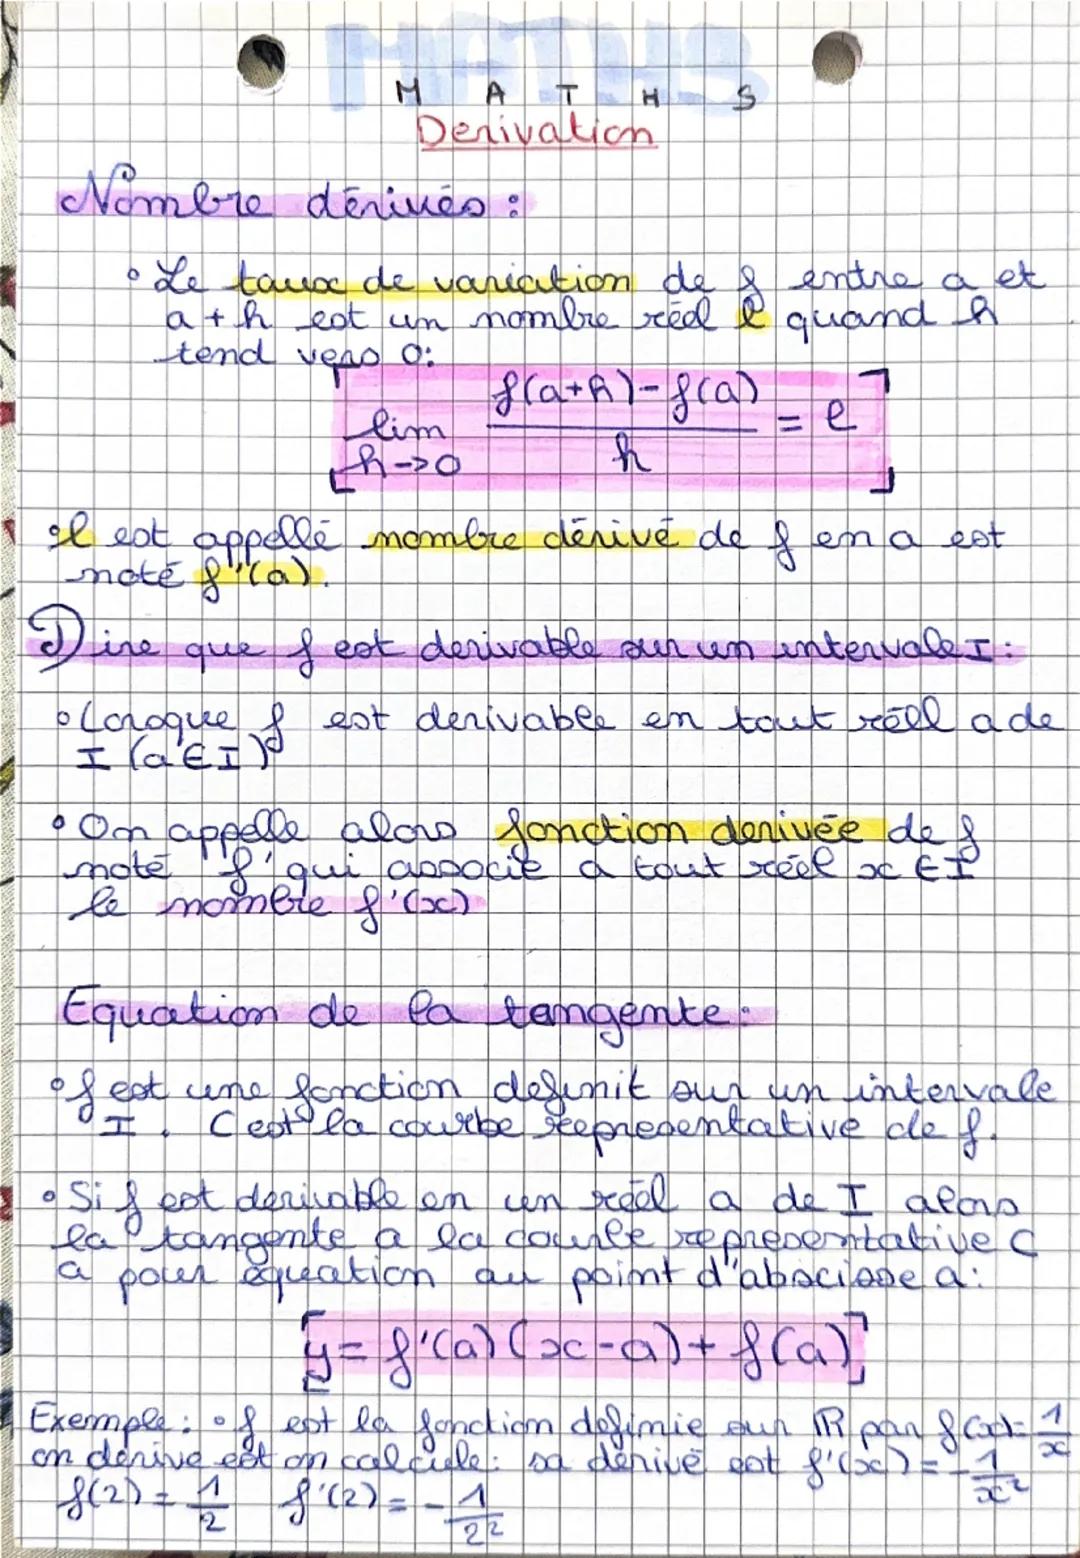 MATHS
Derivation
Nombre dérivés :
• Le taux de variation de f entre a et
a + h est un nombre réél l quand h
tend vers 0:
[lim h->0 (f(a+h)-f(a))/h = l]
•l est appellé nombre dérivé de f en a est
noté f'(a).
Dire que f est derivable sur un intervale I :
• Lorsque f est derivable en tout réél a de
I (a ∈ I)
• On appelle alors fonction derivée de f
noté f' qui associe a tout réél x ∈ I
le nombre f'(x)
Equation de la tangente:
• f est une fonction definit sur un intervale
I. C est la courbe representative de f.
• Si f est derivable en un réél a de I alors
la tangente a la courbe representative C
a pour équation au point d"absciose a:
[y = f'(a)(x-a)+f(a)]
Exemple: • f est la fonction definie sur ℝ par f(x)= 1/x
on dérive est on calcule: sa dérivé est f'(x) = -1/x²
f(2) = 1/2 f'(2) = -1/2²